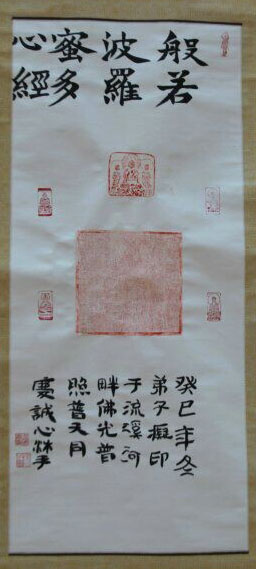 般若
波羅
蜜多
心經
癸巳年冬
弟子印
于流溪河
畔佛光普
照普天同
慶誠心手